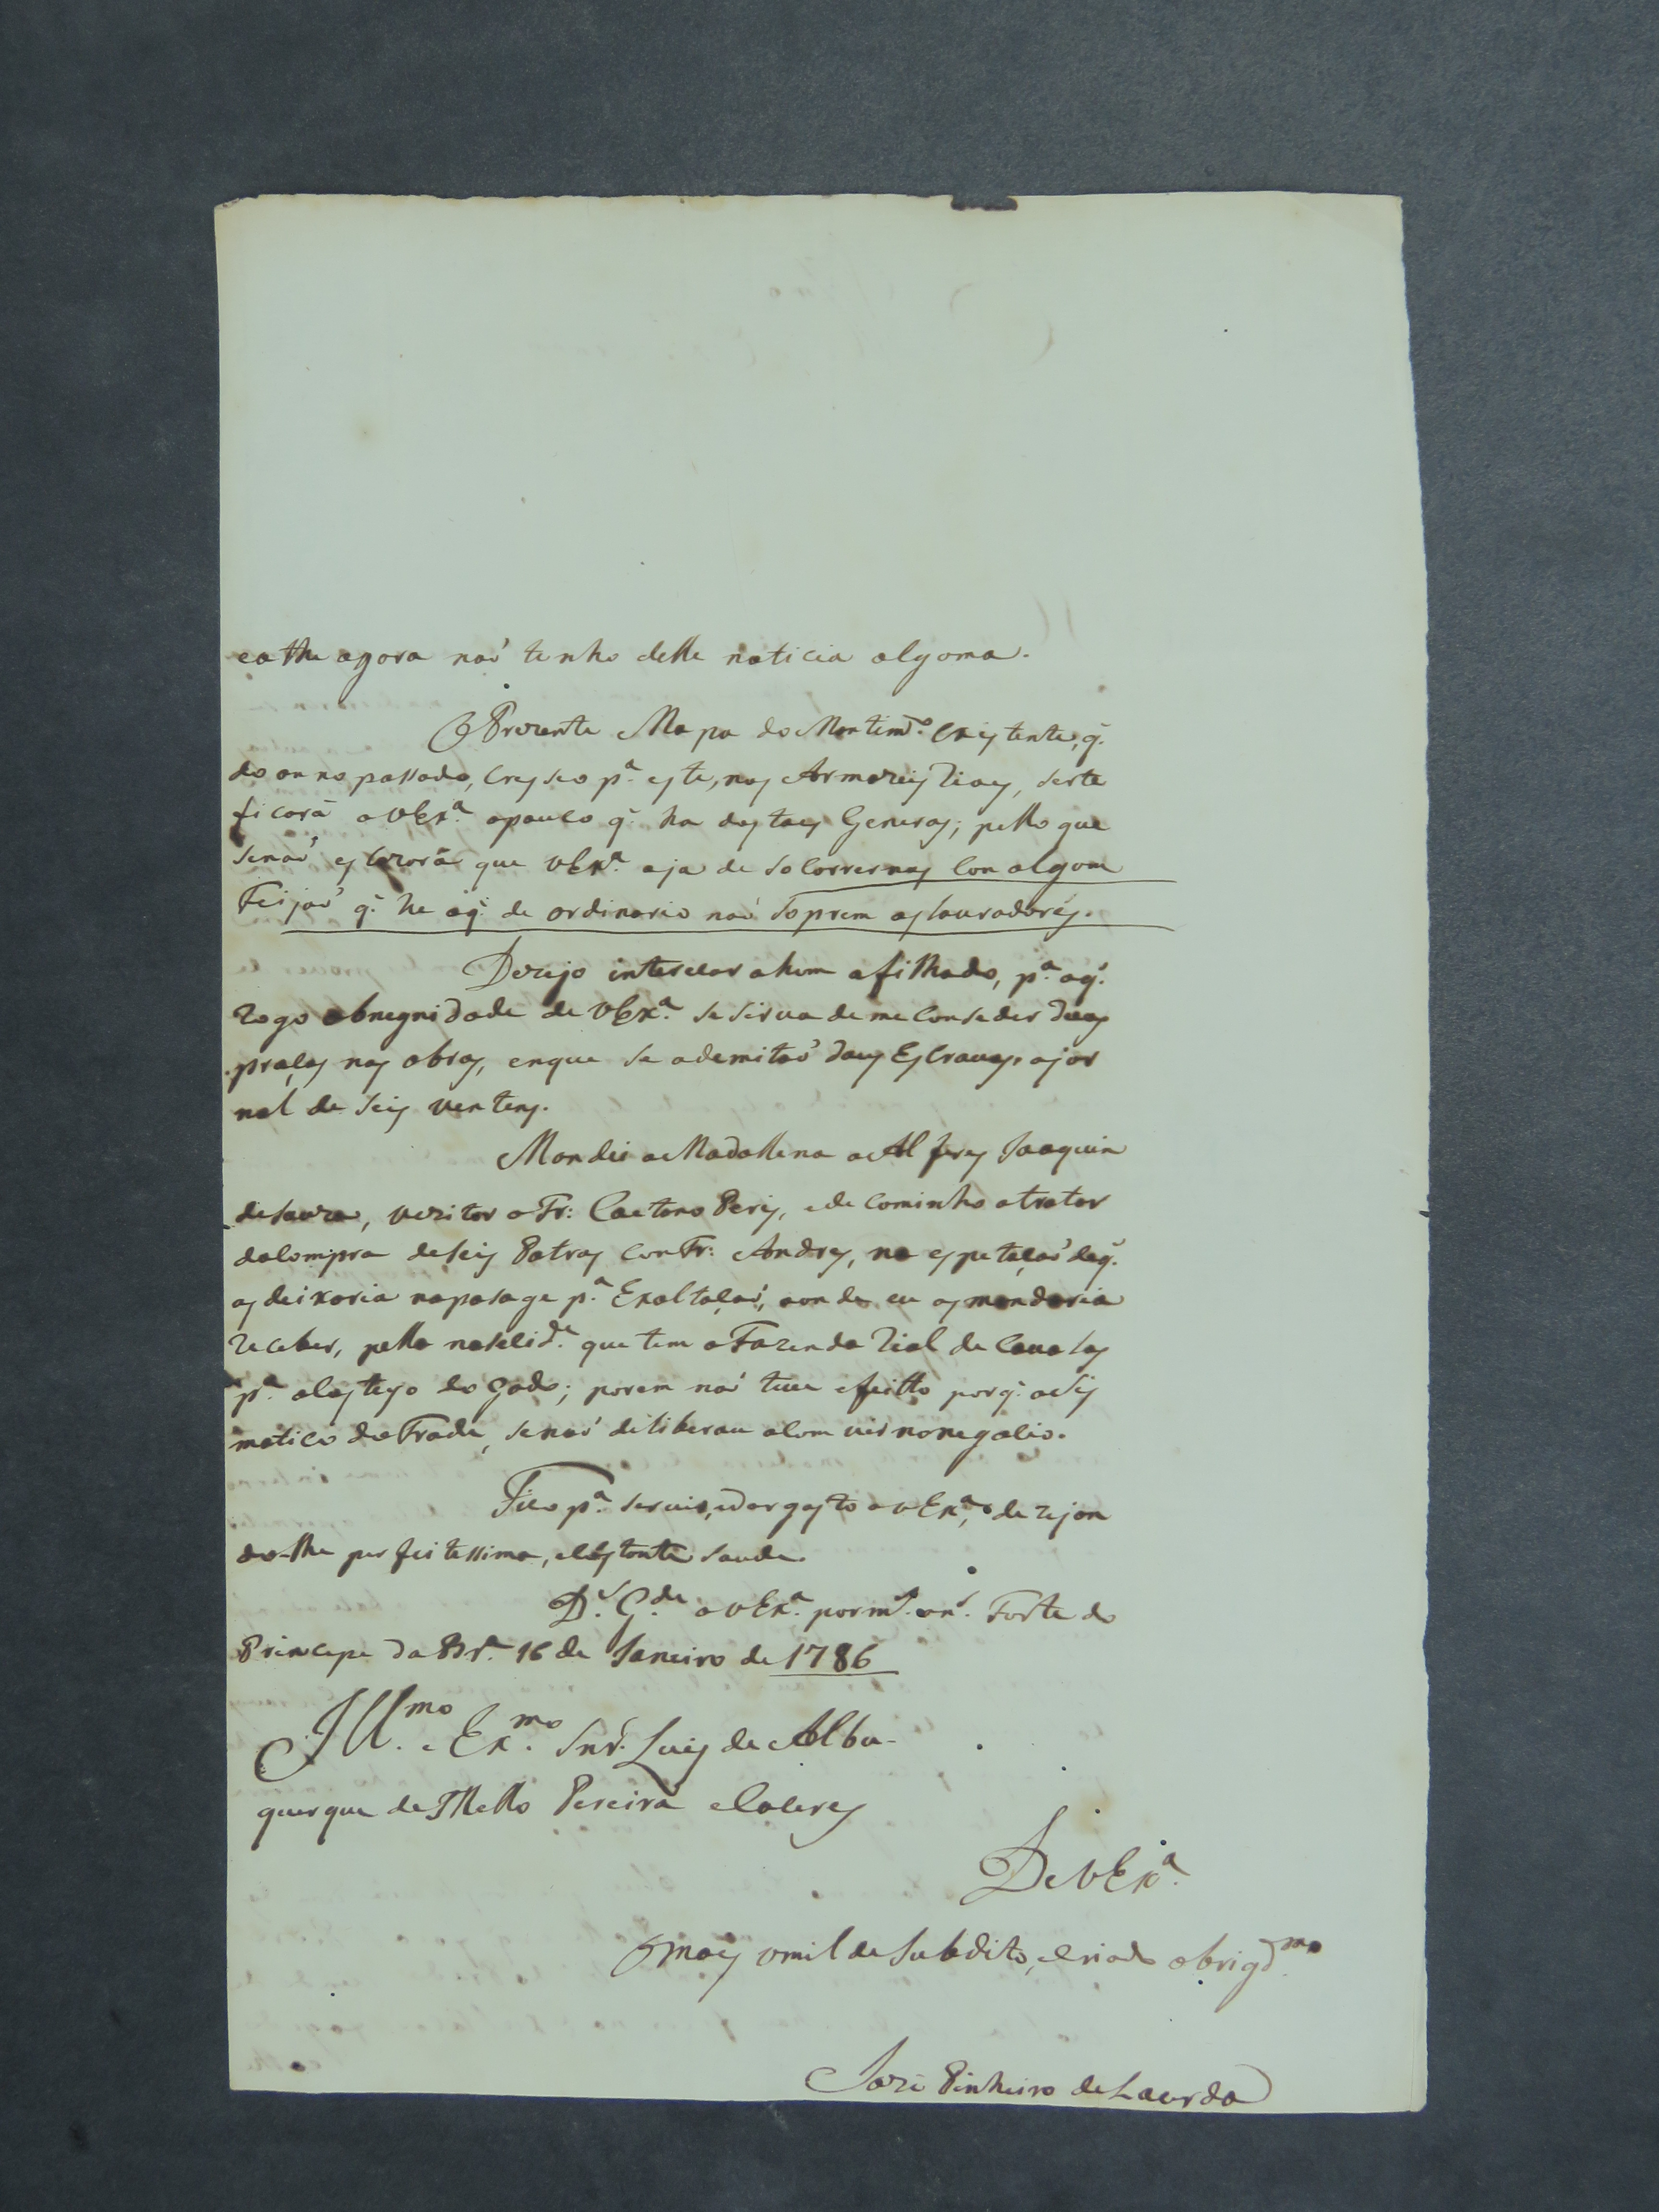 eathe agora naõ tenho delle noticia algoma.
O Prezente Mapa do Mantimt.º Existente, q̃.
do anno passado, cresceo pª este, nos Armazeis Riaes, serte
ficará a VExª. opouco q̃. ha destes Generos; pello que
senaõ escuzará que VExª. aja de socorrernos con algom
Feijaõ q̃. he aq̃. de ordinario naõ soprem os lauradores.
Dezejo interesar a hum afilhado, pª. oq̃.
rogo abnegnidade de VExª. se sirua de me conseder duas
praças nas obras, enque se ademitaõ dous Escrauos, ajor
nal de seis ventens.
Mandei a Madallena o Alferes Joaquim
de Souza, vezitar o Fr: Caetano Peres, e de caminho atratar
da compra de seis Potros con Fr: Andres, na espetaçaõ deq̃.
os deixaria napasage pª. Exaltaçaõ, aonde eu os mandaria
receber, pella neselidᵉ. que tem a Fazenda Rial de Caualos
pª. o costeyo do Gado; porem naõ teue efeitto porq̃. o Sis
matico do Frade, senaõ diliberou a lom vir nonegosio.
Fico pª. seruir, edar gosto a VExª., dezejan
do-lhe perfeitessima, e constante saude.
Dˢ. Gᵈᵉ a VExª. por mˢ. anˢ. Forte do
Principe da Brª. 16 de Janeiro de 1786
Illᵐᵒ. e Exᵐᵒ. Snr̃. Luis de Albu-
querque de Mello Pereira eCaceres
De VExª.
O mais vmilde subdito, ecriado obrigdᵐᵒ
Jozé Pinheiro de Lacerda